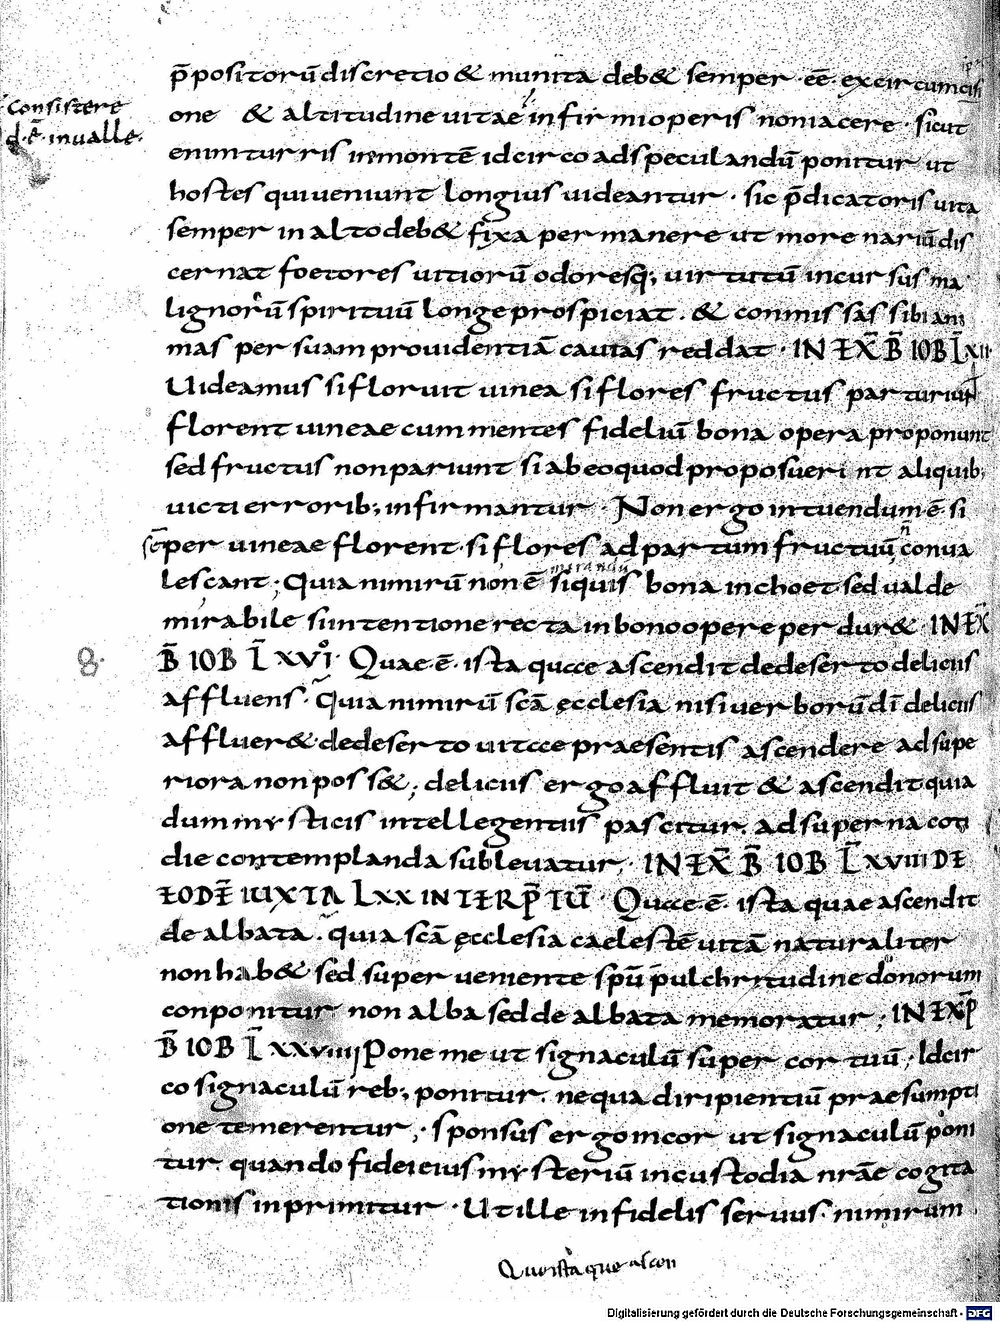 p̄positorū discretio & munita deb& semper ·ēē· excircumcisi
Consistere
one & altitudine uitae infirmioperis noniacere · sicut
d· ē· inualle·
enim turris inmontē idcirco adspeculandū ponitur ut
hostes qui ueniunt longius uideantur · sic p̄dicatoris uita
semper in alto deb& fixa permanere ut more nariū dis
cernat foetores uitiorū odoresq; uirtutū incursus ma
lignorū spirituū longe prospiciat . & conmissas sibi ani
mas per suam prouidentiā cautas reddat · IN EX̄ B̄ IOB L̄XII
Uideamus si floruit uinea si flores fructus parturiunt
florent uineae cum mentes fideliū bona opera proponunt
sed fructus non pariunt si ab eo quod proposuerint aliquib;
uicti errorib; infirmantur · Non ergo intuendum·ē· si
sēper uineae florent· si flores ad partum fructuū conua
n̄
lescant ; Quia nimirū non ē siquis bona inchoet sed ualde
mirandū
mirabile si intentione recta in bono opere perdur& · IN EX̄
8·
B̄ IOB L̄ XVI° Quae·ē· ista quae ascendit dedeserto deliciis
affluens · Quia nimirū scā ęcclesia nisi uerborū dī deliciis
affluer& dedeserto uitae praesentis ascendere ad supe
riora non poss& ; deliciis ergo affluit & ascendit quia
dum mysticis intellegentiis pascitur. ad superna coti
die contemplanda subleuatur ; IN EX̄ B̄ IOB L̄XVIIII DE
EODĒ IUXTA LXX INTERP̄TŪ · Quae·ē· ista quae ascendit
de albata . quia scā ęcclesia caelestē uitā naturaliter
non hab& sed superueniente sp̄u pulchritudine donorum
conponitur non alba sed de albata memoratur ; IN EXP̄
B̄ IOB L̄ XXVIIII Pone me ut signaculū super cor tuū ; Idcir
co signaculū reb; ponitur. nequa diripientiū praesumpti
one temerentur ; · sponsus ergo incor ut signaculū poni
tur. quando fidei eius mysteriū incustodia nr̄ae cogita
tionis inprimitur · Ut ille infidelis seruus· nimirum